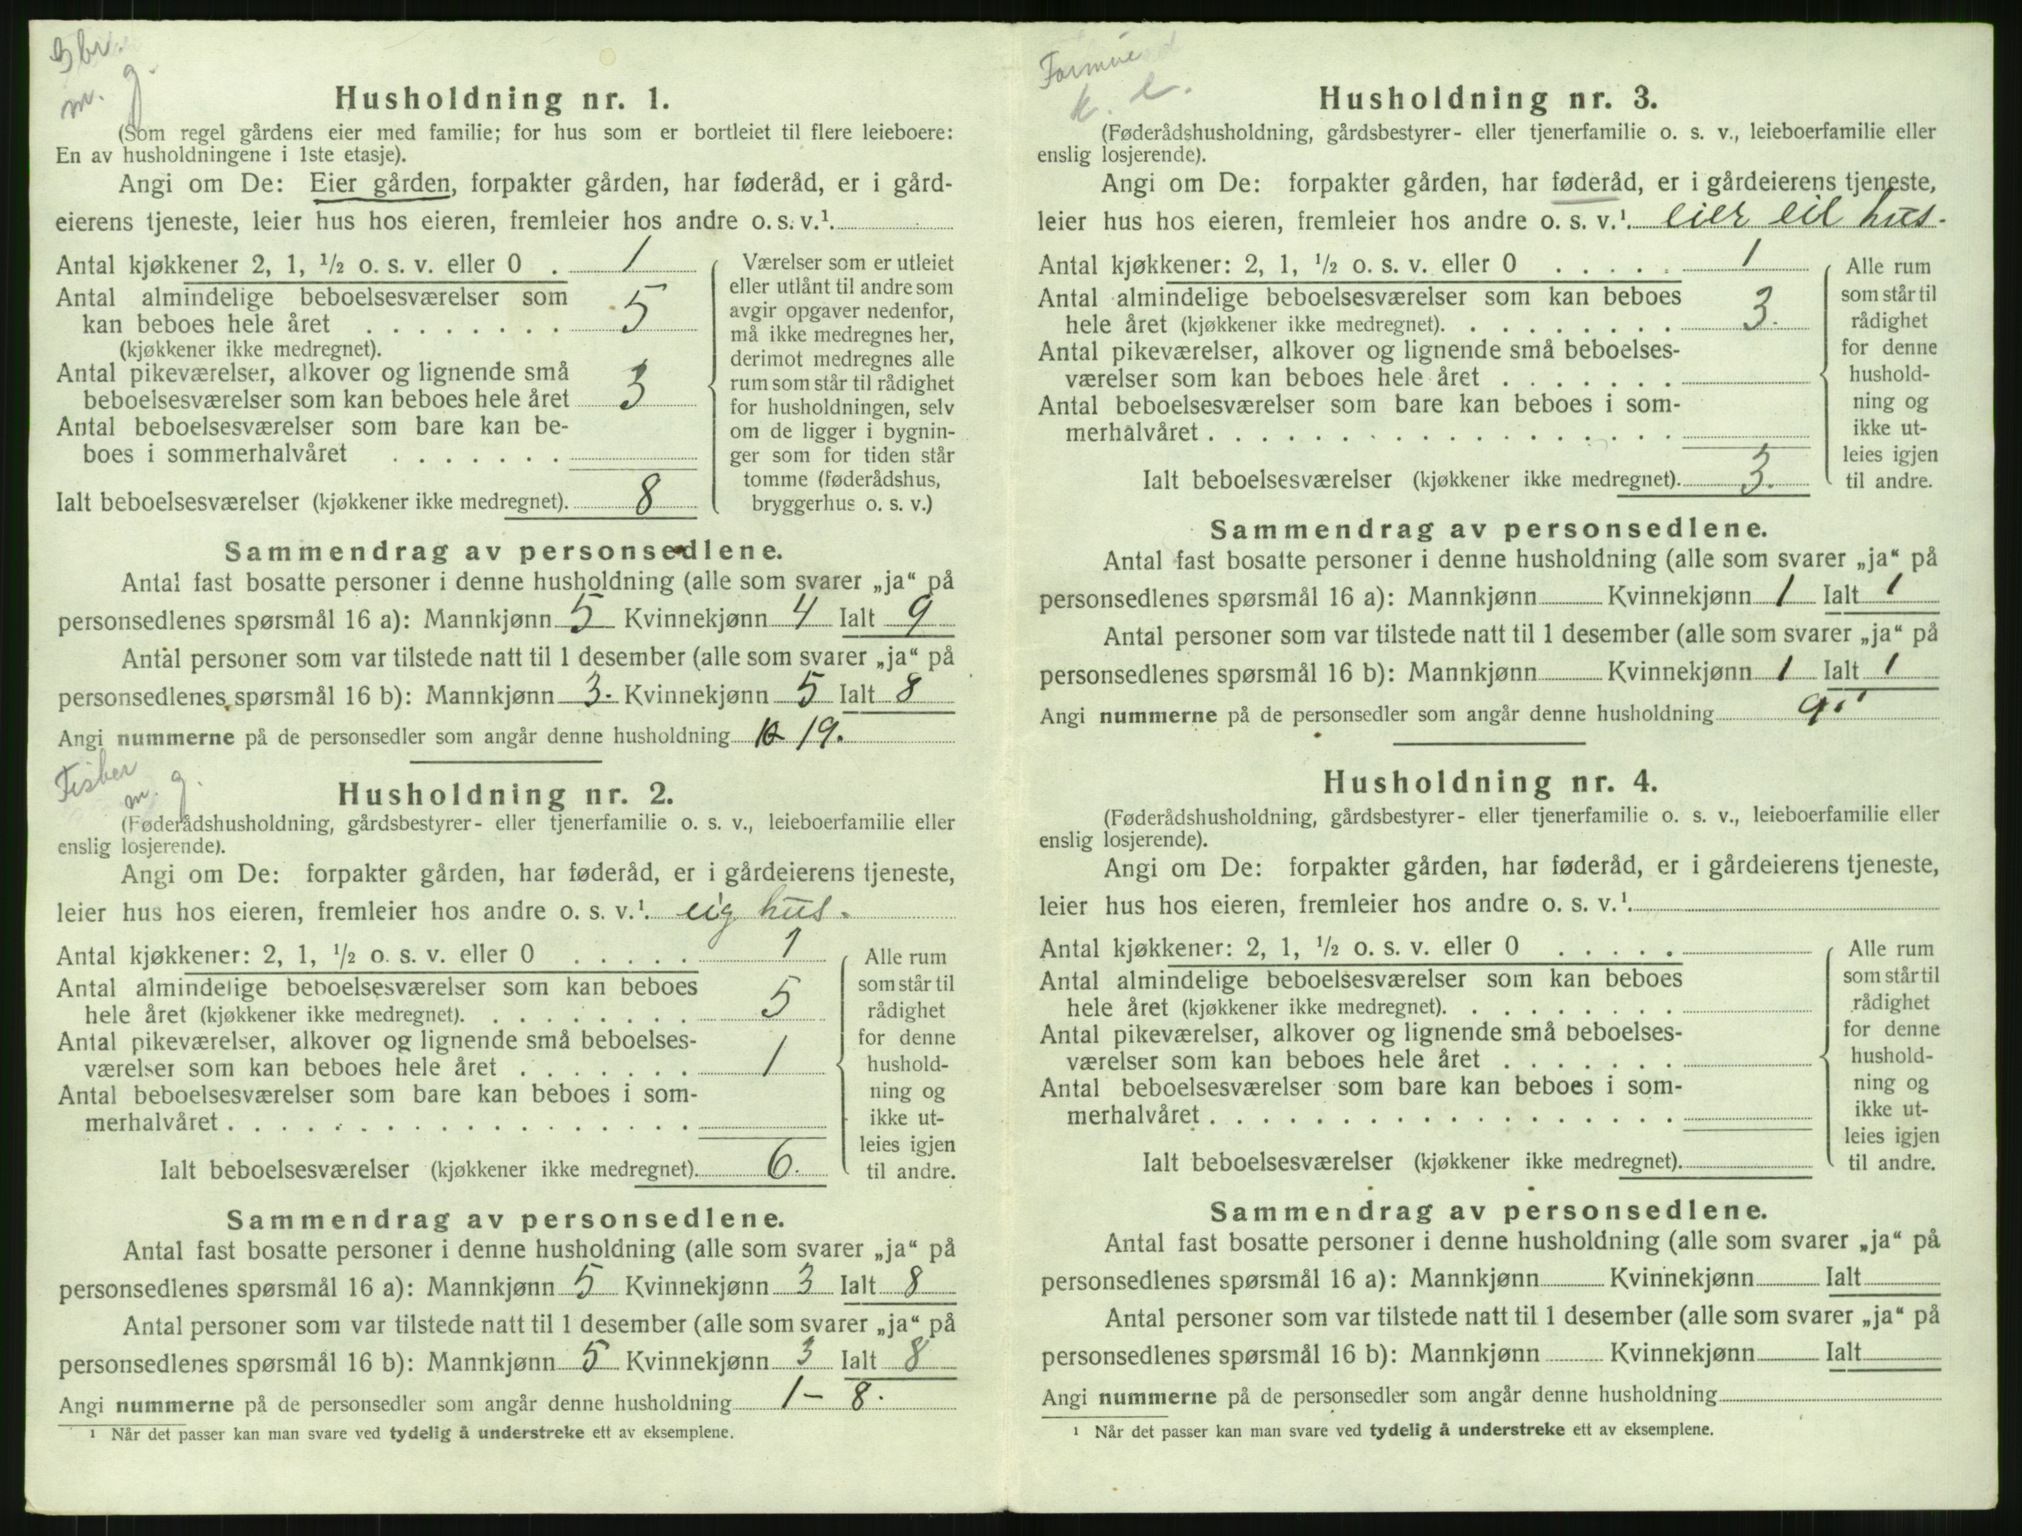 Gbr.
m. g.
Husholdning nr. 1.
(Som regel gårdens eier med familie; for hus som er bortleiet til flere leieboere:
En av husholdningene i 1ste etasje).
Angi om De: Eier gården, forpakter gården, har føderåd, er i gård-
eierens tjeneste, leier hus hos eieren, fremleier hos andre o. s. v.¹
Antal kjøkkener 2, 1, ½ o. s. v. eller 0 . 1
Antal almindelige beboelsesværelser som
kan beboes hele året . . . . . . . . 5
(kjøkkener ikke medregnet).
Antal pikeværelser, alkover og lignende små
beboelsesværelser som kan beboes hele året 3
Antal beboelsesværelser som bare kan be-
boes i sommerhalvåret . . . . . . .
Ialt beboelsesværelser (kjøkkener ikke medregnet). 8
Værelser som er utleiet
eller utlånt til andre som
avgir opgaver nedenfor,
må ikke medregnes her,
derimot medregnes alle
rum som står til rådighet
for husholdningen, selv
om de ligger i bygnin-
ger som for tiden står
tomme (føderådshus,
bryggerhus o. s. v.)
Sammendrag av personsedlene.
Antal fast bosatte personer i denne husholdning (alle som svarer „ja“ på
personsedlenes spørsmål 16 a): Mannkjønn 5 Kvinnekjønn 4 Ialt 9
Antal personer som var tilstede natt til 1 desember (alle som svarer „ja“ på
personsedlenes spørsmål 16 b): Mannkjønn 3. Kvinnekjønn 5 Ialt 8
Angi nummerne på de personsedler som angår denne husholdning 19.
Fisker
m. g.
Husholdning nr. 2.
(Føderådshusholdning, gårdsbestyrer- eller tjenerfamilie o. s. v., leieboerfamilie eller
enslig losjerende).
Angi om De: forpakter gården, har føderåd, er i gårdeierens tjeneste,
leier hus hos eieren, fremleier hos andre o. s. v.¹. eig hus.
Antal kjøkkener: 2, 1, ½ o. s. v. eller 0 . . . . . 1
Antal almindelige beboelsesværelser som kan beboes
hele året (kjøkkener ikke medregnet). . . . . . . . . 5
Antal pikeværelser, alkover og lignende små beboelses-
værelser som kan beboes hele året . . . . . . . 1
Antal beboelsesværelser som bare kan beboes i som-
merhalvåret . . . . . . . . . . . . . . . . . .
Ialt beboelsesværelser (kjøkkener ikke medregnet). 6.
Alle rum
som står til
rådighet
for denne
hushold-
ning og
ikke ut-
leies igjen
til andre.
Sammendrag av personsedlene.
Antal fast bosatte personer i denne husholdning (alle som svarer „ja“ på
personsedlenes spørsmål 16 a): Mannkjønn 5 Kvinnekjønn 3 Ialt 8
Antal personer som var tilstede natt til 1 desember (alle som svarer „ja“ på
personsedlenes spørsmål 16 b): Mannkjønn 5 Kvinnekjønn 3 Ialt 8
Angi nummerne på de personsedler som angår denne husholdning 1 – 8.
¹ Når det passer kan man svare ved tydelig å understreke ett av eksemplene.
k. e.
Husholdning nr. 3.
(Føderådshusholdning, gårdsbestyrer- eller tjenerfamilie o. s. v., leieboerfamilie eller
enslig losjerende).
Angi om De: forpakter gården, har føderåd, er i gårdeierens tjeneste,
leier hus hos eieren, fremleier hos andre o. s. v.¹. eier eil hus.
Antal kjøkkener: 2, 1, ½ o. s. v. eller 0 . . . . . 1
Antal almindelige beboelsesværelser som kan beboes
hele året (kjøkkener ikke medregnet). . . . . . . . . 3.
Antal pikeværelser, alkover og lignende små beboelses-
værelser som kan beboes hele året . . . . . . .
Antal beboelsesværelser som bare kan beboes i som-
merhalvåret . . . . . . . . . . . . . . . . . .
Ialt beboelsesværelser (kjøkkener ikke medregnet). 3.
Alle rum
som står til
rådighet
for denne
hushold-
ning og
ikke ut-
leies igjen
til andre.
Sammendrag av personsedlene.
Antal fast bosatte personer i denne husholdning (alle som svarer „ja“ på
personsedlenes spørsmål 16 a): Mannkjønn Kvinnekjønn 1 Ialt 1
Antal personer som var tilstede natt til 1 desember (alle som svarer „ja“ på
personsedlenes spørsmål 16 b): Mannkjønn Kvinnekjønn 1 Ialt 1
Angi nummerne på de personsedler som angår denne husholdning 9.
Husholdning nr. 4.
(Føderådshusholdning, gårdsbestyrer- eller tjenerfamilie o. s. v., leieboerfamilie eller
enslig losjerende).
Angi om De: forpakter gården, har føderåd, er i gårdeierens tjeneste,
leier hus hos eieren, fremleier hos andre o. s. v.¹.
Antal kjøkkener: 2, 1, ½ o. s. v. eller 0 . . . . .
Antal almindelige beboelsesværelser som kan beboes
hele året (kjøkkener ikke medregnet). . . . . . . . .
Antal pikeværelser, alkover og lignende små beboelses-
værelser som kan beboes hele året . . . . . . .
Antal beboelsesværelser som bare kan beboes i som-
merhalvåret . . . . . . . . . . . . . . . . . .
Ialt beboelsesværelser (kjøkkener ikke medregnet).
Alle rum
som står til
rådighet
for denne
hushold-
ning og
ikke ut-
leies igjen
til andre.
Sammendrag av personsedlene.
Antal fast bosatte personer i denne husholdning (alle som svarer „ja“ på
personsedlenes spørsmål 16 a): Mannkjønn Kvinnekjønn Ialt
Antal personer som var tilstede natt til 1 desember (alle som svarer „ja“ på
personsedlenes spørsmål 16 b): Mannkjønn Kvinnekjønn Ialt
Angi nummerne på de personsedler som angår denne husholdning
¹ Når det passer kan man svare ved tydelig å understreke ett av eksemplene.